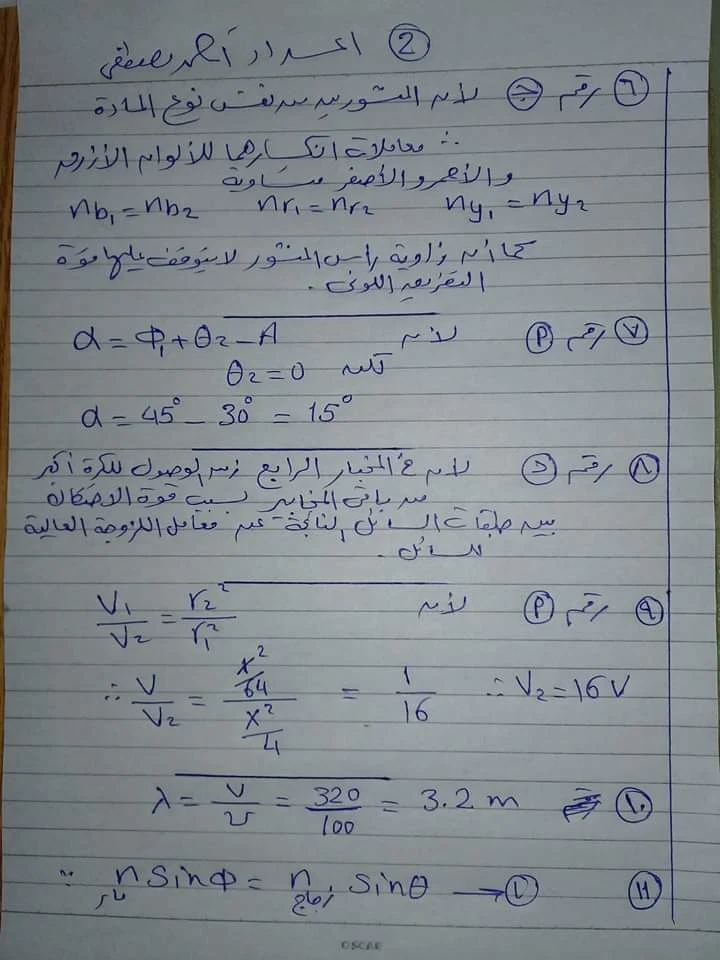 ② اعداد أحمد مصطفى
⑥ رقم ⓙ لأنه المنشورين من نفس نوع المادة
∴ معاملات انكسارهما للألوان الأزرق
والأحمر والأصفر متساوية
nb₁ = nb₂ nr₁ = nr₂ ny₁ = ny₂
كما أن زاوية رأس المنشور لا يتوقف عليها قوة
التفريق اللونى .
⑦ رقم Ⓟ لأن α = Φ₁ + θ₂ – A
لكن θ₂ = 0
α = 45° – 30° = 15°
⑧ رقم ⓓ لأن فى المخبار الرابع زمن الوصول للكرة أكبر
من باقى المخابير بسبب قوة الاحتكاك
بين طبقات السائل الناتجة عن معامل اللزوجة العالية
للسائل .
⑨ رقم Ⓟ لأن V₁/V₂ = r₂²/r₁²
∴ V/V₂ = (x²/64)/(x²/4) = 1/16 ∴ V₂ = 16V
⑩ λ = v/υ = 320/100 = 3.2 m
⑪ ∵ n sinΦ = n sinθ → ①
زجاج
OSCAR